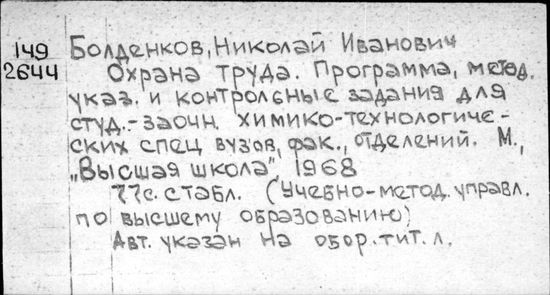 149
2644
Болденков, Николай Иванович
Охрана труда. Программа, метод.
указ. и контрольные задания для
студ.-заочн. химико-технологиче-
ских спец вузов, фак., отделений. М.,
„Высшая школа", 1968
77с. с табл. (Учебно-метод. управл.
по высшему образованию)
Авт. указан на обор. тит. л.